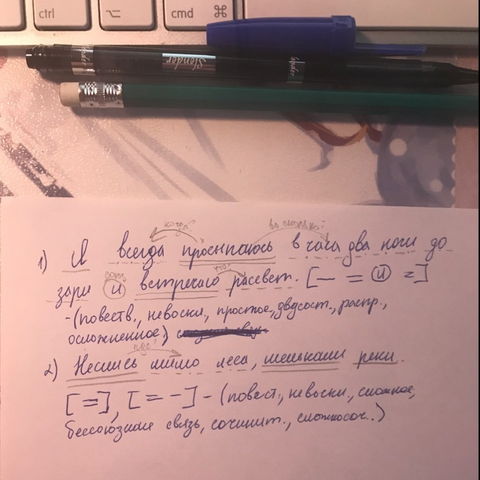 ctrl
alt
cmd ⌘
Slender
когда?
во сколько?
1) Я всегда просыпаюсь в часа два ночи до
зари и встречаю рассвет. [— = и =]
- (повеств., невоскл., простое, двусост., распр.,
осложненное)
где?
2) Неслись мимо леса, мелькали реки.
[=], [= -] - (повест., невоскл., сложное,
бессоюзная связь, сочинит., сложносоч..)